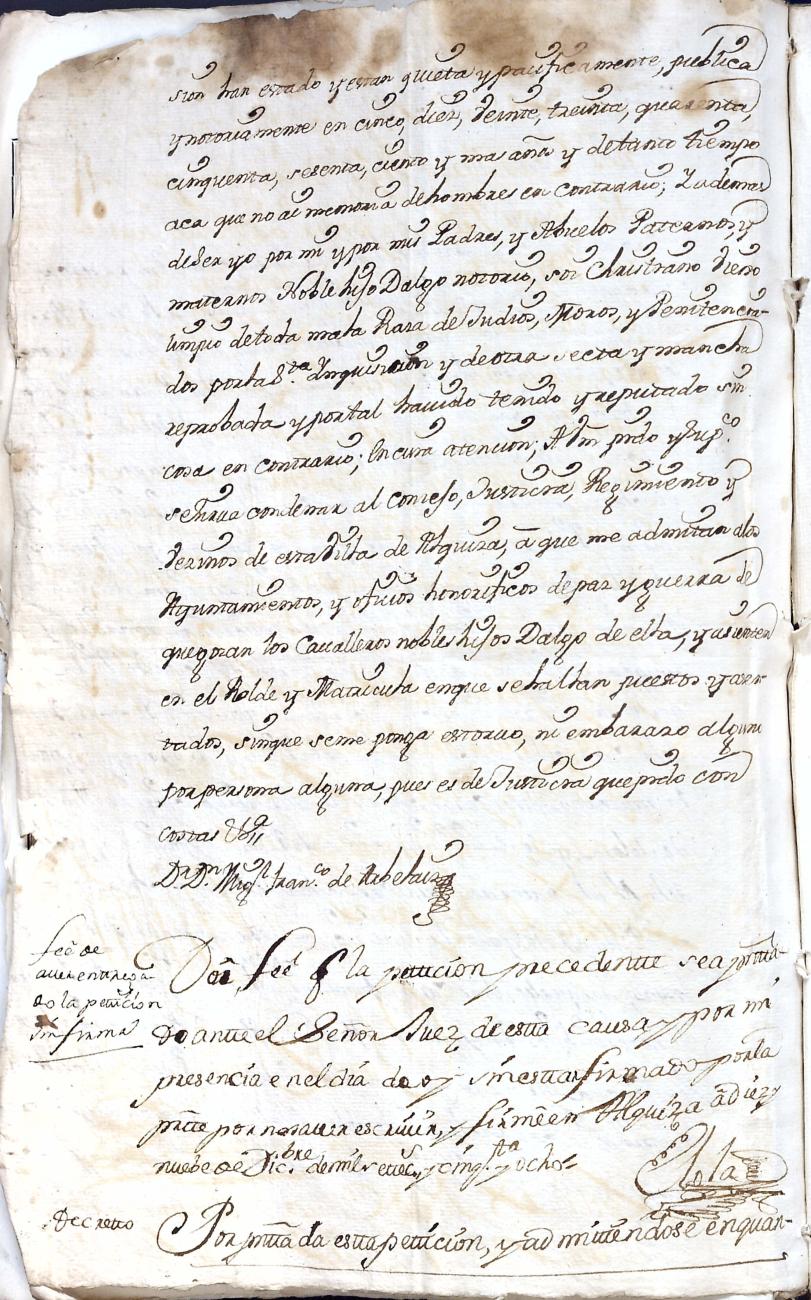 sion han estado y estan quieta y pacificamente, publica
y notoriamente en cinco, diez, Veinte, treinta, quarenta,
cinquenta, sesenta, ciento y mas años y de tanto tiempo
aca que no ai memoria de hombres en contrario; Y ademas
de Ser yo por mi y por mis Padres, y Abuelos Paternos, y
maternos Noble hijo Dalgo notorio, soi Christiano Viejo
limpio de toda mala Raza de Judios, Moros, y Penitencia-
dos por la S.ta Ynquisicion y de otra secta y mancha
reprobada y por tal havido tenido y reputado sin
cosa en contrario; En cuia atencion; A Vm pido y Sup.co
se sirva condenar al Concejo, Justicia, Regimiento y
Vezinos de esta Villa de Alquiza, à que me admitan a los
Ayuntamientos, y oficios honorificos de paz y guerra de
que gozan los Cavalleros nobles hijos Dalgo de ella, y asienten
en el Rolde y Matricula en que se hallan puestos y asen-
tados, sin que se me ponga estorvo, ni embarazo alguno
por persona alguna, pues es de Justicia que pido con
costas V.a
D.r D.n Mig.l Fran.co de
fee de
aver entrega-
do la peticion
sin firma
Doi feé q la peticion precedentte se a pntta-
do antte el Señor Juez de estta causa y por mi
presencia en el dia de oy sin esttar firmado por la
pntte por no saver escrivir, y firmé en Alquiza a diez y
nuebe de Dic.bre de mil settec.s y cinq.ta y ocho=
Decretto
Por pntta da estta peticion, y admittiendose en quan-